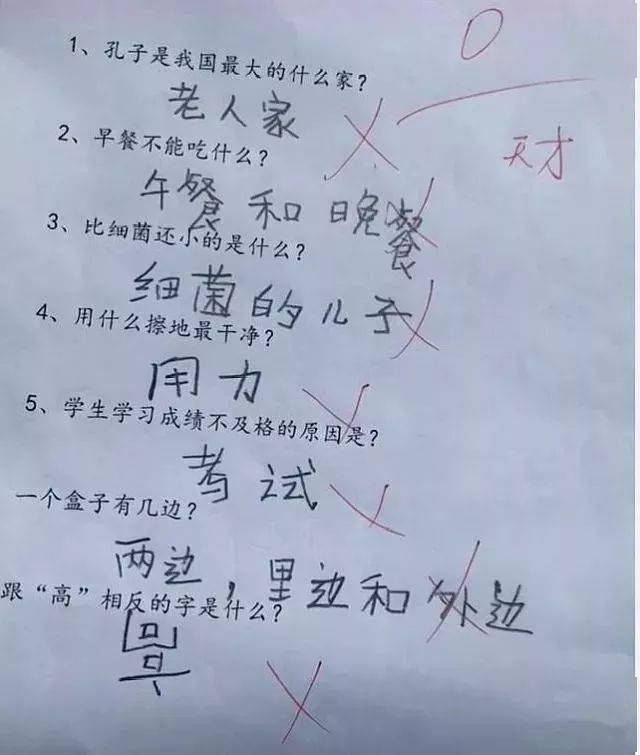 0
1、孔子是我国最大的什么家?
老人家
天才
2、早餐不能吃什么?
午餐和晚餐
3、比细菌还小的是什么?
细菌的儿子
4、用什么擦地最干净?
用力
5、学生学习成绩不及格的原因是?
考试
一个盒子有几边?
两边，里边和外边
跟“高”相反的字是什么?